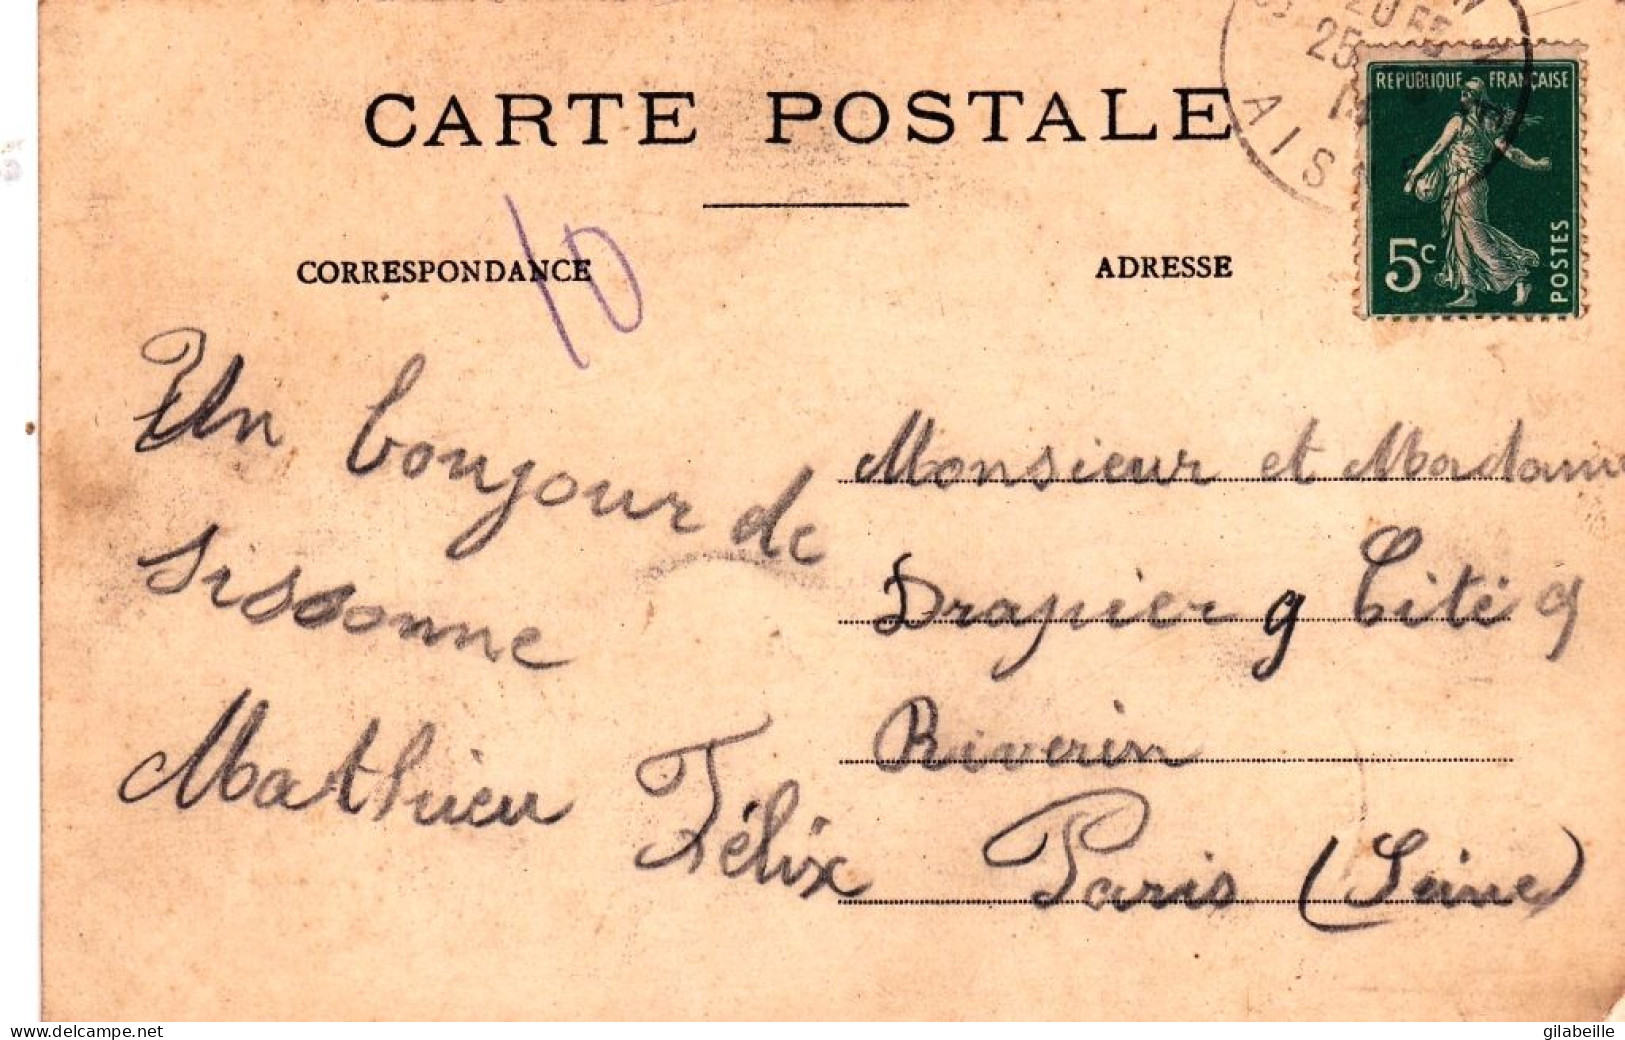 CARTE POSTALE
CORRESPONDANCE
10
ADRESSE
20 55
25
AISNE
REPUBLIQUE FRANÇAISE
5c
POSTES
Un bonjour de
Sissonne
Mathieu Félix
Monsieur et Madame
Drapier 9 Cité 9
Riverin
Paris (Seine)
www.delcampe.net
gilabeille